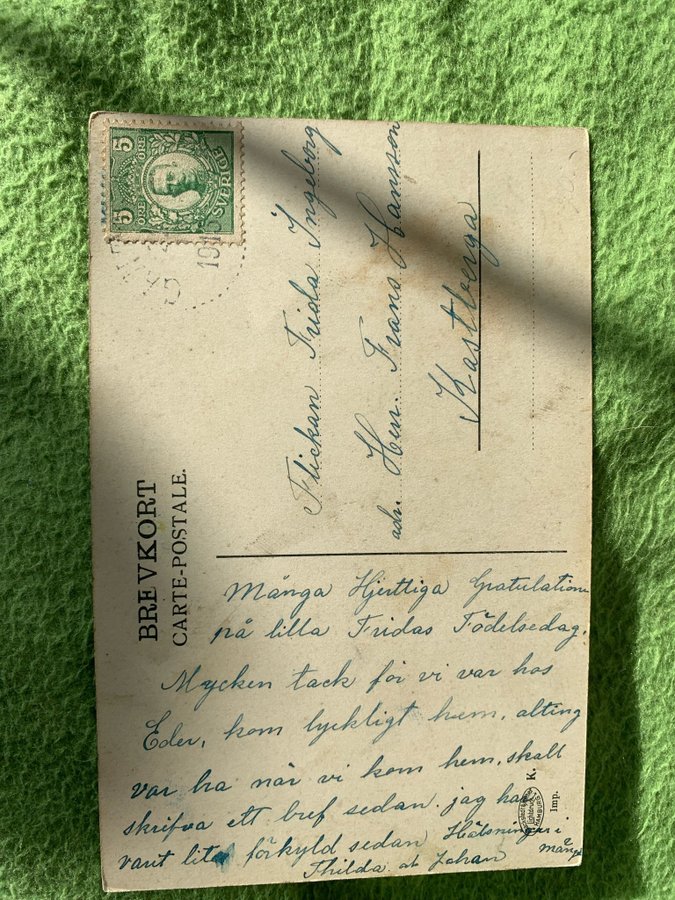 5 ÖRE 5
SVERIGE
1910
BREVKORT
CARTE-POSTALE.
Flickan Frida Ingeborg
adr. Herr. Frans Hansson
Kastberga
Många Hjerttliga Gratulation
på lilla Fridas Födelsedag.
Mycken tack för vi var hos
Eder, kom lyckligt hem, alting
var bra när vi kom hem, skall
skrifva ett bref sedan. jag har
varit lite förkyld sedan Hälsningar i
mång
Thilda. at Johan
HAMBURG
K.
Imp.